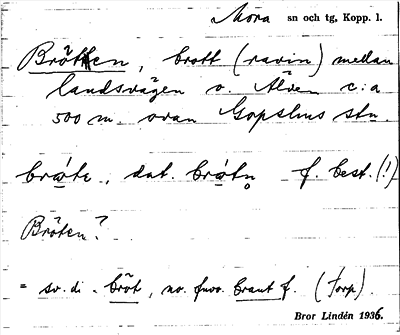 Mora sn och tg, Kopp. l.
Bröten, brott (ravin) mellan
landsvägen o. Älven c:a
500 m. ovan Gopshus stn.
dat. f. best. (!)
Bröten?
= sv. di. bröt, no. fno. braut f. (Torp).
Bror Lindén 1936.